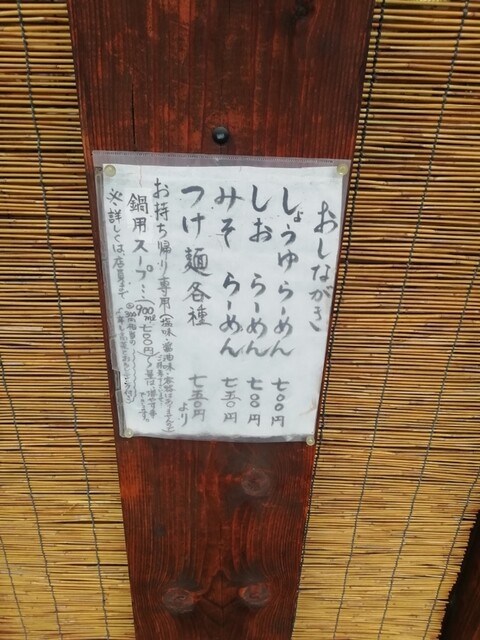 おしながき
しょうゆらーめん 七〇〇円
しお らーめん 七〇〇円
みそ らーめん 七五〇円
つけ麺各種 七五〇円より
お持ち帰り専用
鍋用スープ… 900ml 七〇〇円
※詳しくは店員まで